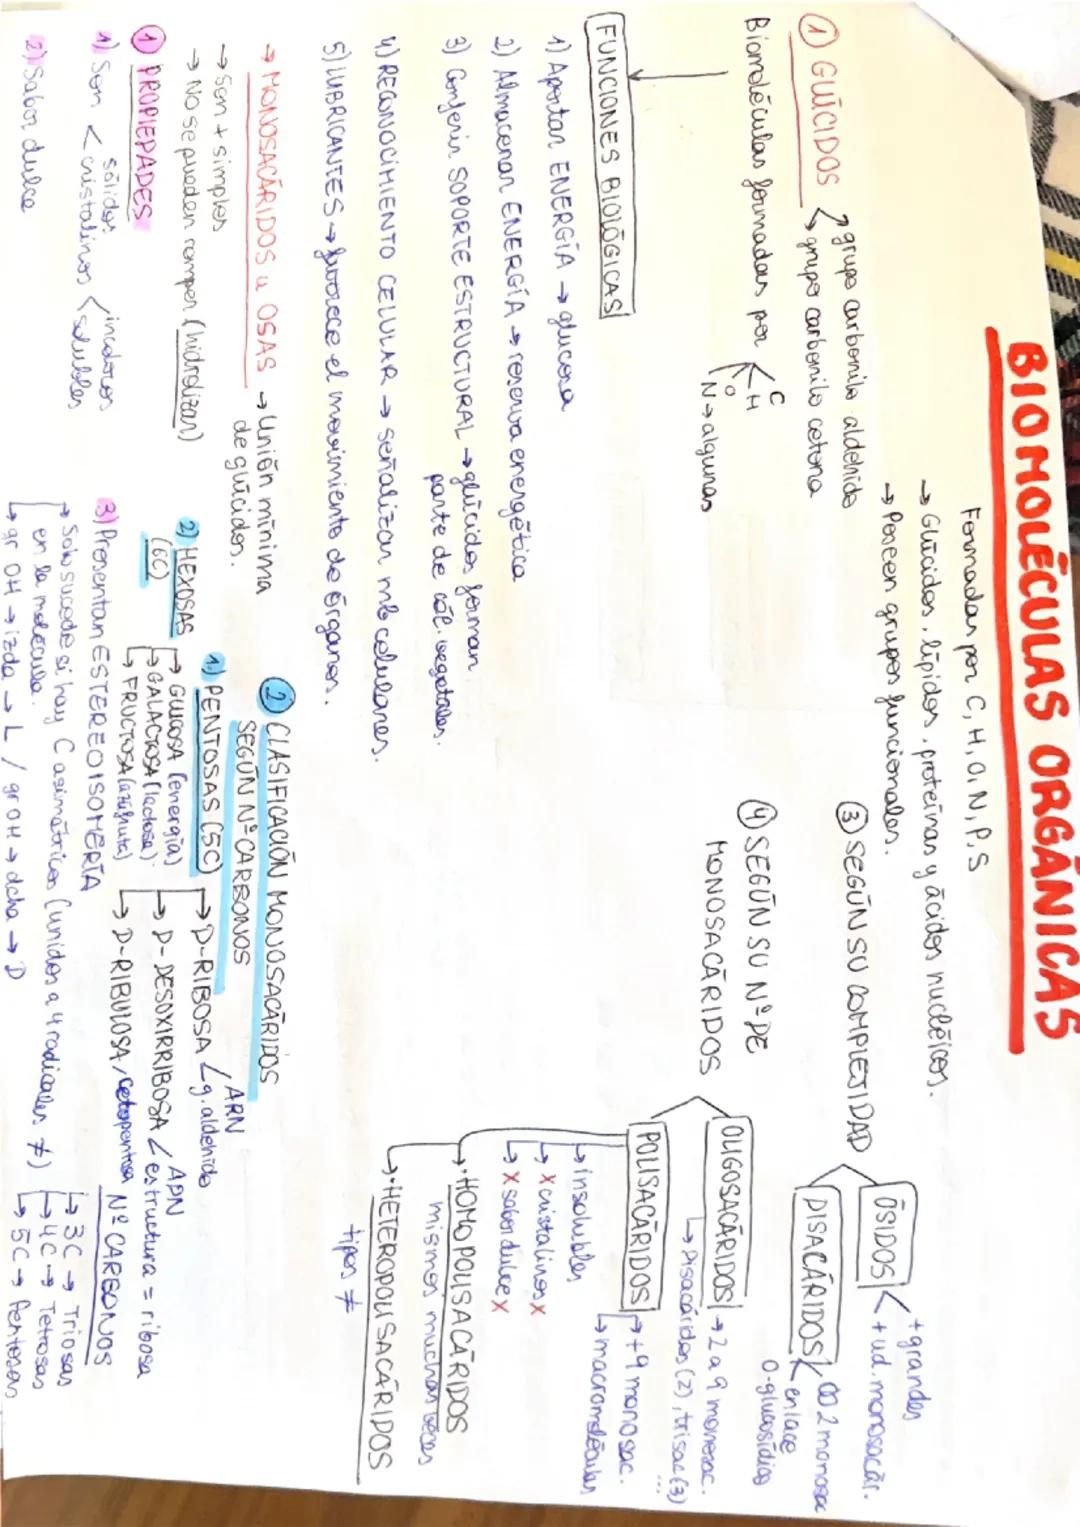 BIOMOLÉCULAS ORGÁNICAS
Formadas por C, H, O, N, P, S
→ Glúcidos, lípidos, proteínas y ácidos nucléicos.
→ Poseen grupos funcionales.
① GLÚCIDOS
grupo carbonilo aldehido
grupo carbonilo cetona
Biomoléculas formadas por
C
H
O
N → algunas
FUNCIONES BIOLÓGICAS
1) Aportar ENERGÍA → glucosa
2) Almacenar ENERGÍA → reserva energética
3) Conferir SOPORTE ESTRUCTURAL → glúcidos forman
parte de cél. vegetales.
4) RECONOCIMIENTO CELULAR → señalizar mb celulares.
5) LUBRICANTES → favorece el movimiento de órganos.
→ MONOSACÁRIDOS u OSAS → Unión mínima
de glúcidos.
→ Son + simples
→ No se pueden romper (hidrolizar)
① PROPIEPADES
1) Son < sólidos
cristalinos < incoloros
solubles
2) Sabor dulce
② CLASIFICACIÓN MONOSACÁRIDOS
SEGÚN Nº CARBONOS
1) PENTOSAS (5C)
→ D-RIBOSA < ARN
g. aldehido
→ D-DESOXIRRIBOSA < ADN
estructura = ribosa
→ D-RIBULOSA, cetopentosa
2) HEXOSAS
(6C)
→ GLUCOSA (energía)
→ GALACTOSA (lactosa)
→ FRUCTOSA (azú fruta)
3) Presentan ESTEREOISOMERÍA
→ Solo sucede si hay C asimétricos (unidos a 4 radicales ≠)
en la molécula.
→ gr OH → izda → L / gr OH → dcha → D
Nº CARBONOS
→ 3C → Triosas
→ 4C → Tetrosas
→ 5C → Pentosas
③ SEGÚN SU COMPLEJIDAD
ÓSIDOS
+ grandes
+ ud. monosacár.
DISACÁRIDOS
2 monosac
enlace
O-glucosídico
④ SEGÚN SU Nº DE
MONOSACÁRIDOS
OLIGOSACÁRIDOS → 2 a 9 monosac.
→ Disacáridos (2), trisac (3)
...
POLISACÁRIDOS → +9 monosac.
→ macromoléculas
→ insolubles
→ X cristalinos X
→ X sabor dulce X
→ · HOMOPOLISACÁRIDOS
mismos muchas veces
→ · HETEROPOLISACÁRIDOS
tipos ≠